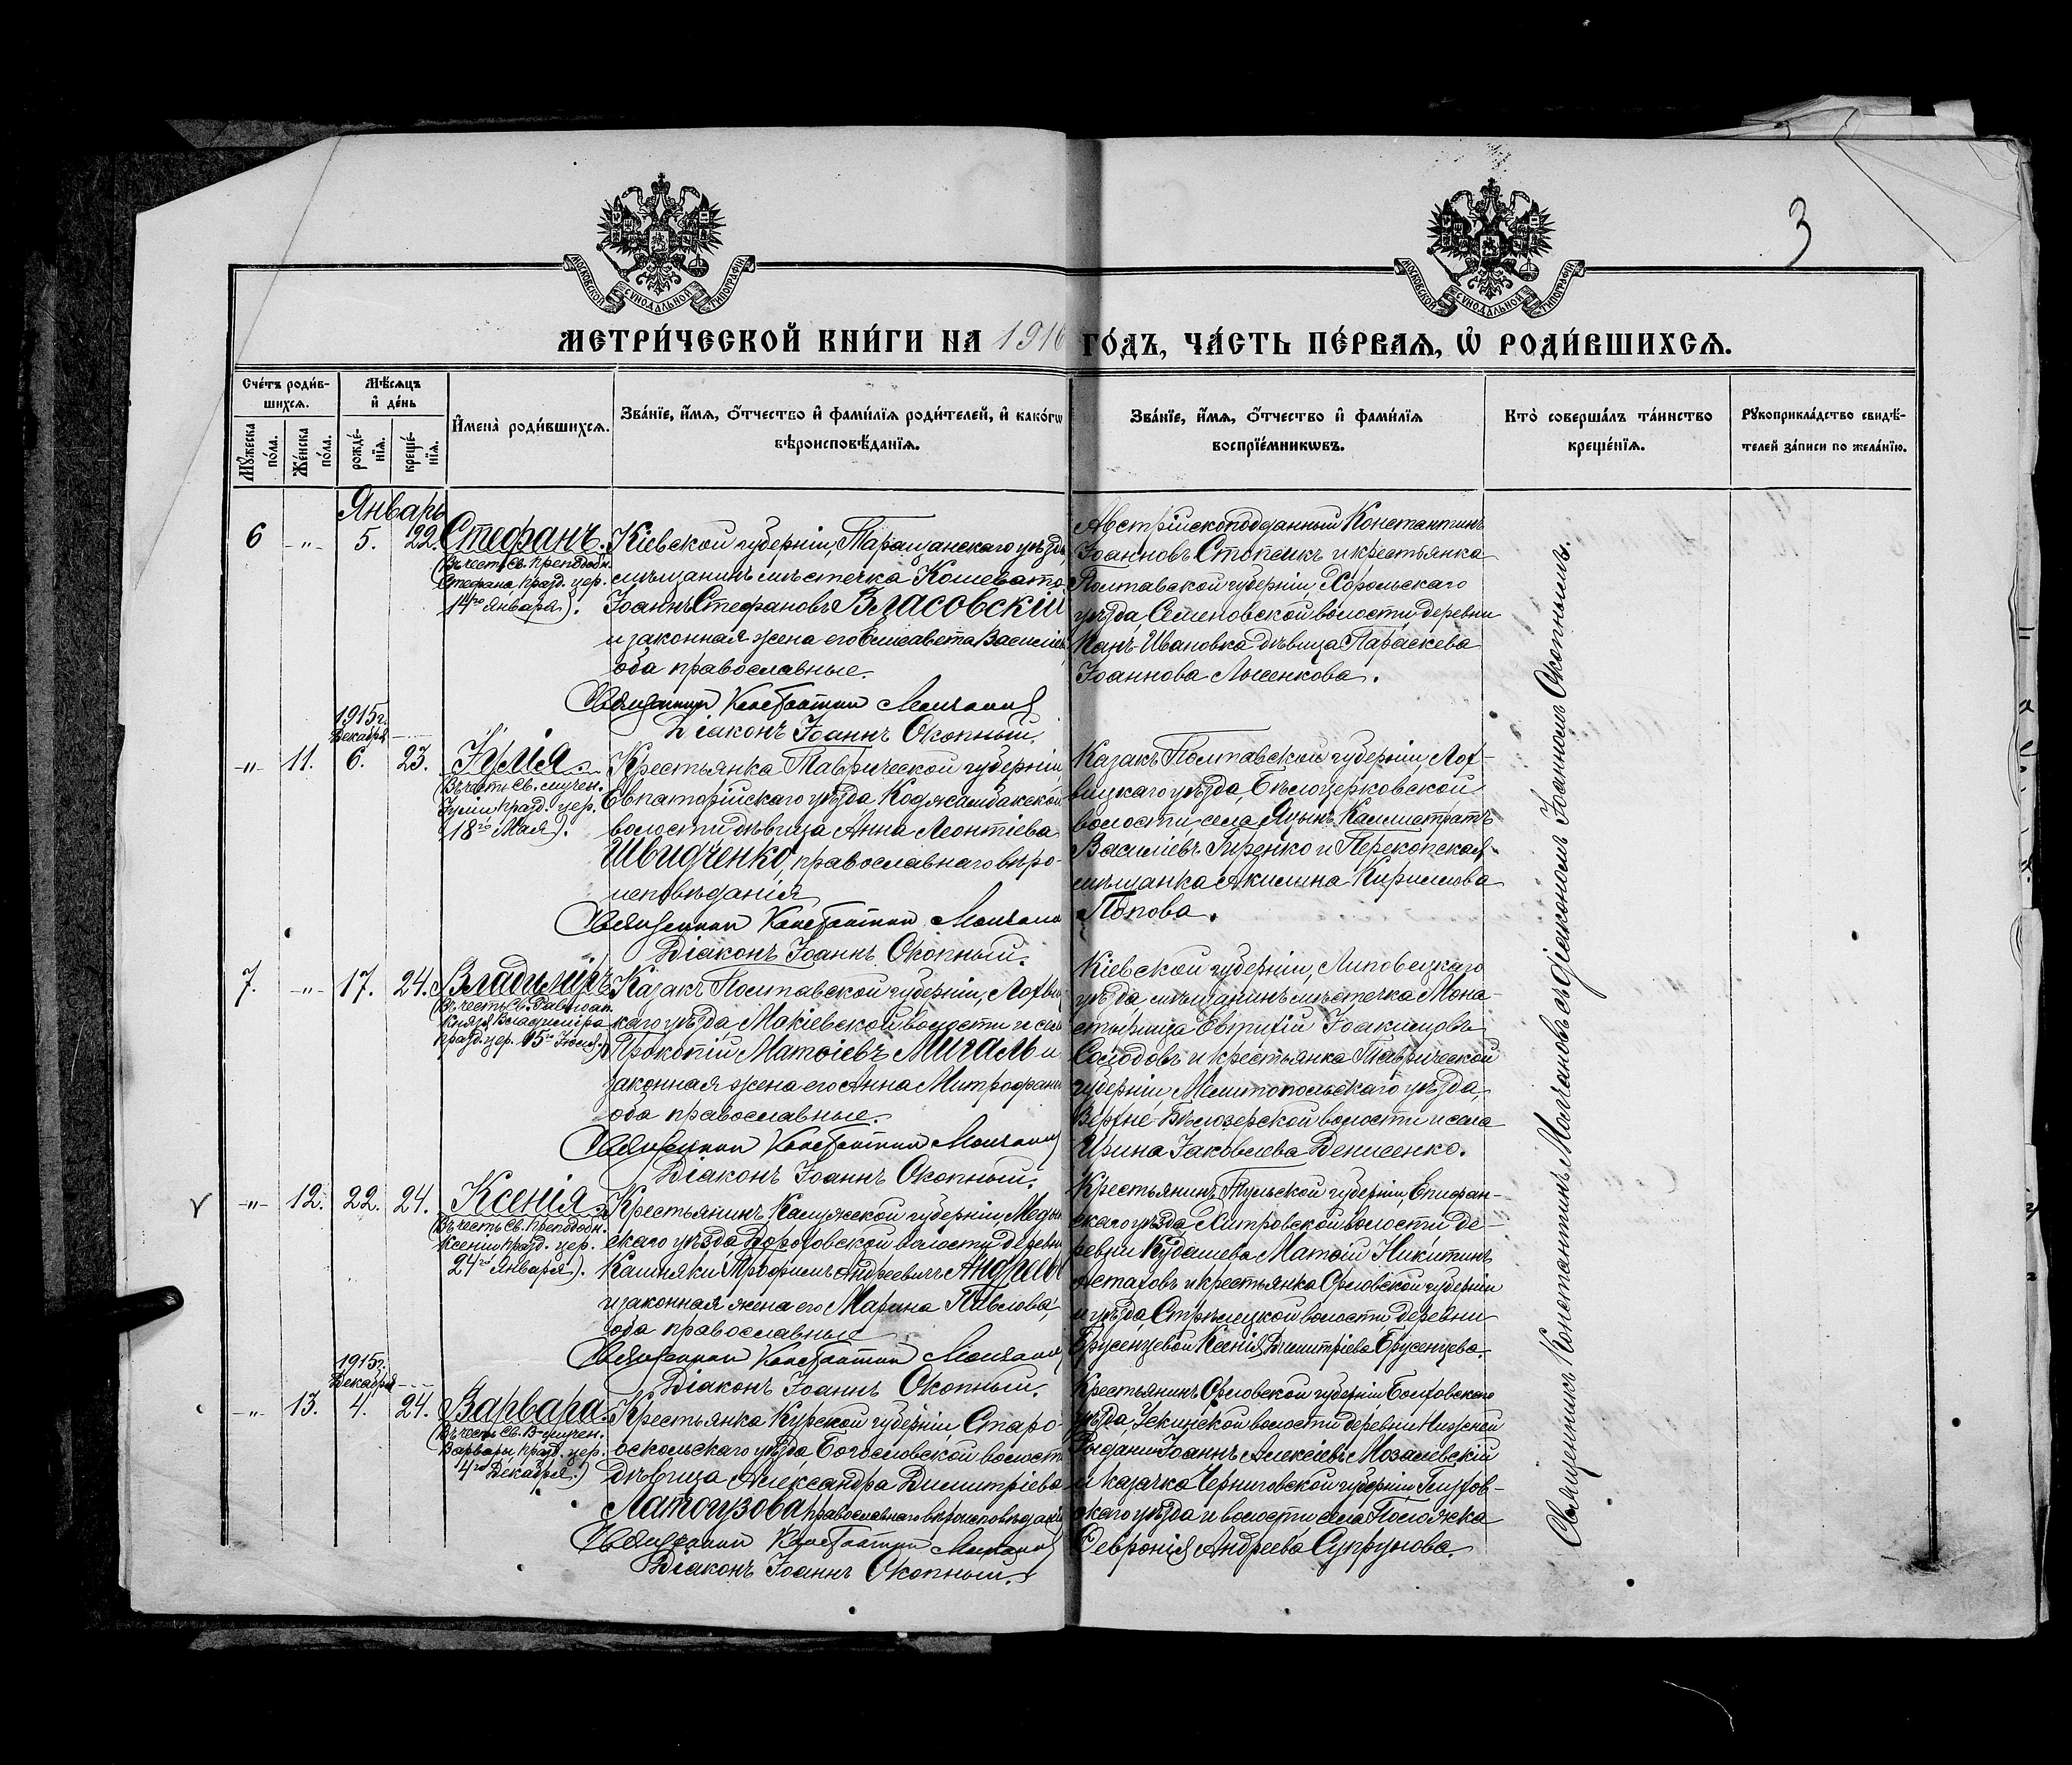 3
МОСКОВСКОЙ СѴНОДАЛЬНОЙ ТИПОГРАФІИ
МОСКОВСКОЙ СѴНОДАЛЬНОЙ ТИПОГРАФІИ
МЕТРИ́ЧЕСКОЙ КНИ́ГИ НА 1916 ГО́ДЪ, ЧА́СТЬ ПЕ́РВАѦ, Ѡ҆ РОДИ́ВШИХСѦ.
Сче́тъ роди́в-
шихсѧ.
Мꙋ́жеска по́ла.
Же́нска по́ла.
Мѣ́сѧцъ
и҆ де́нь
рожде́-
нїѧ.
креще́-
нїѧ.
И҆мена̀ роди́вшихсѧ.
Зва́нїе, и҆́мѧ, ѻ҆́тчество и҆ фамѝлїѧ роди́телей, и҆ како́гѡ
вѣроисповѣ́данїѧ.
Зва́нїе, и҆́мѧ, ѻ҆́тчество и҆ фами́лїѧ
воспрїе́мникѡвъ.
Кто̀ соверша́лъ та́инство
креще́нїѧ.
Рꙋкоприкла́дство свидѣ́-
телей за́писи по жела́нїю.
Январь
6 -"- 5. 22. Стефанъ.
(Въ честь Св. преподобн.
Стефана, празд. цер.
14го Января).
Кіевской губерніи, Таращанскаго уѣзда,
мѣщанинъ мѣстечка Кошевато
Іоаннъ Стефановъ Власовскій
и законная жена его Елисавета Василіев
оба православные.
Священникъ Константинъ Молчановъ
Діаконъ Іоаннъ Окопный.
Австрійскоподданный Константинъ
Іоанновъ Стопеикъ и крестьянка
Полтавской губерніи, Хорольскаго
уѣзда, Семеновской волости, деревни
Панъ-Ивановка дѣвица Параскева
Іоаннова Лысенкова.
1915 г.
Декабря
-"- 11. 6. 23. Іулія.
(Въ честь Св. мучен.
Іуліи, празд. цер.
18го Мая).
Крестьянка Таврической губерніи
Евпаторійскаго уѣзда Коджамбакской
волости дѣвица Анна Леонтіева
Швидченко, православнаго вѣро-
исповѣданія
Священникъ Константинъ Молчанов
Діаконъ Іоаннъ Окопный.
Казакъ Полтавской губерніи, Лох-
вицкаго уѣзда, Бѣлоцерковской
волости, села Яцынъ Каллистратъ
Василіевъ Гиренко и Перекопская
мѣщанка Акилина Кириллова
Попова.
7. -"- 17. 24. Владиміръ
(Въ честь Св. Равноап.
Князя Владиміра
празд. цер. 15го Іюля.)
Казакъ Полтавской губерніи, Лохвиц
каго уѣзда Макіевской волости и села
Прокопій Матѳіевъ Мигаль и
законная жена его Анна Митрофан
оба православные.
Священникъ Константинъ Молчановъ
Діаконъ Іоаннъ Окопный.
Кіевской губерніи, Липовецкаго
уѣзда, мѣщанинъ мѣстечка Мона-
стырища Евтихій Іоакимовъ
Солодовъ и крестьянка Таврической
губерніи, Мелитопольскаго уѣзда,
Верхне-Бѣлозерской волости и села
Ирина Іаковлева Денисенко.
-"- 12. 22. 24. Ксенія.
(Въ честь Св. Преподобн.
Ксеніи, празд. цер.
24го Января).
Крестьянинъ Калужской губерніи Медын
скаго уѣзда Пороховской волости деревни
Кашняки Трофимъ Андреевичъ Андреев
и законная жена его Марина Павлова,
оба православные
Священникъ Константинъ Молчановъ
Діаконъ Іоаннъ Окопный.
Крестьянинъ Тульской губерніи, Епифан-
скаго уѣзда, Хитровской волости де-
ревни Кудашева Матѳій Никитинъ
Астаховъ и крестьянка Орловской губерніи
и уѣзда Стрѣлецкой волости деревни
Брусенцевой Ксенія Димитріева Брусенцева.
1915 г.
Декабря
-"- 13. 4. 24. Варвара.
(Въ честь Св. В-мучен.
Варвары, празд. цер.
4го Декабря.)
Крестьянка Курской губерніи, Старо-
оскольскаго уѣзда, Богословской волости
Дѣвица Александра Димитріева
Латогузова православнаго вѣроисповѣдані
Священникъ Константинъ Молчановъ
Діаконъ Іоаннъ Окопный.
Крестьянинъ Орловской губерніи Болховскаго
уѣзда, волости деревни Нижней
Рыдани Іоаннъ Алексіевъ Мозалевскій
и казачка Черниговской губерніи Глухов-
скаго уѣзда и волости, села Полошка
Ѳевронія Андреева Супрунова.
Священникъ Константинъ Молчановъ съ діакономъ Іоанномъ Окопнымъ.